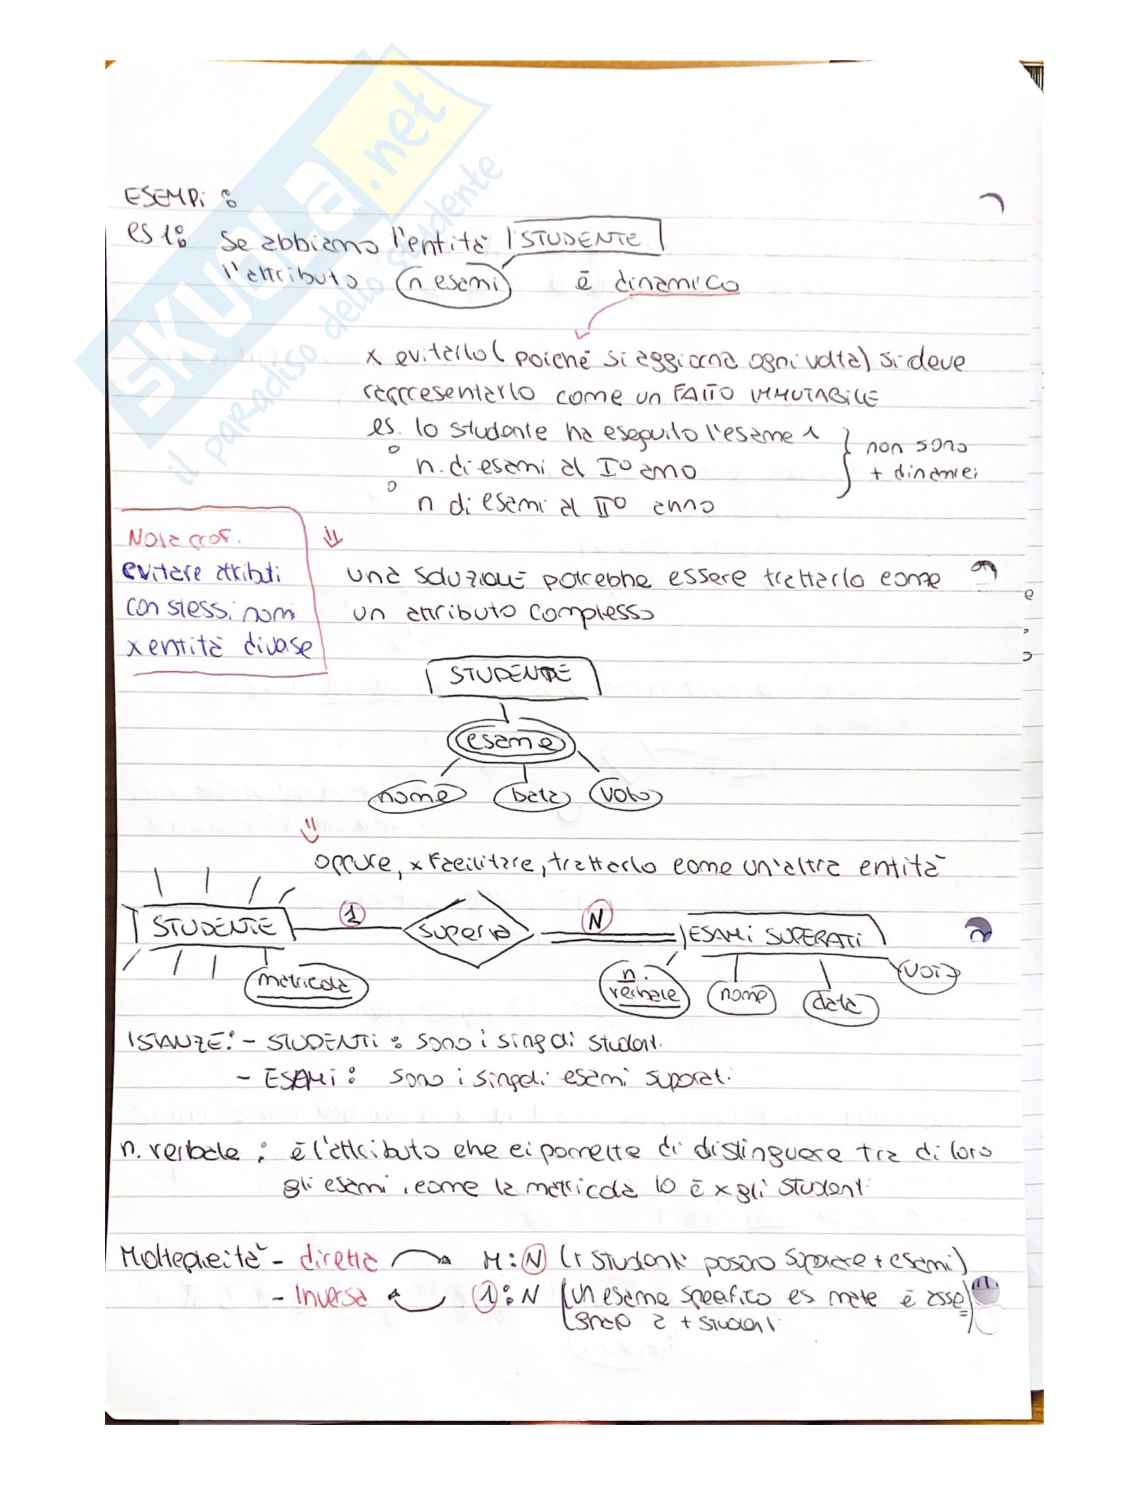 SKUOLA.net
il paradiso dello studente
ESEMPi :
es 1: Se abbiamo l'entità STUDENTE
l'attributo n esami è dinamico
x evitarlo ( poiché si aggiorna ogni volta) si deve
rappresentarlo come un FATTO IMMUTABILE
es. lo studente ha eseguito l'esame 1
n. di esami al I° anno
n di esami al II° anno
non sono
+ dinamici
Nota prof.
evitare attributi
con stessi nomi
x entità diverse
una SOLUZIONE potrebbe essere trattarlo come
un attributo complesso
STUDENTE
esame
nome data voto
oppure, x facilitare, trattarlo come un'altra entità
STUDENTE 1 supera N ESAMi SUPERATi
matricola n. verbale nome data voto
ISTANZE: - STUDENTi : sono i singoli studenti
- ESAMi : sono i singoli esami superati
n. verbale : è l'attributo che ci permette di distinguere tra di loro
gli esami, come la matricola lo è x gli studenti
Molteplicità - diretta M:N (+ studenti possono superare + esami)
- Inversa 1:N (un esame specifico es mate è asse
gnato a + studenti)